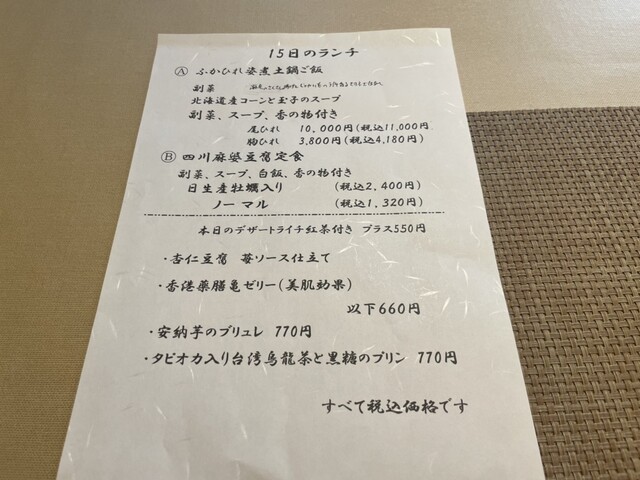 15日のランチ
Ⓐ ふかひれ姿煮土鍋ご飯
副菜
北海道産コーンと玉子のスープ
副菜、スープ、香の物付き
尾ひれ 10,000円(税込11,000円)
胸ひれ 3,800円(税込4,180円)
Ⓑ 四川麻婆豆腐定食
副菜、スープ、白飯、香の物付き
日生産牡蠣入り (税込2,400円)
ノーマル (税込1,320円)
本日のデザートライチ紅茶付き プラス550円
・杏仁豆腐 苺ソース仕立て
・香港薬膳亀ゼリー(美肌効果)
以下660円
・安納芋のブリュレ 770円
・タピオカ入り台湾烏龍茶と黒糖のプリン 770円
すべて税込価格です